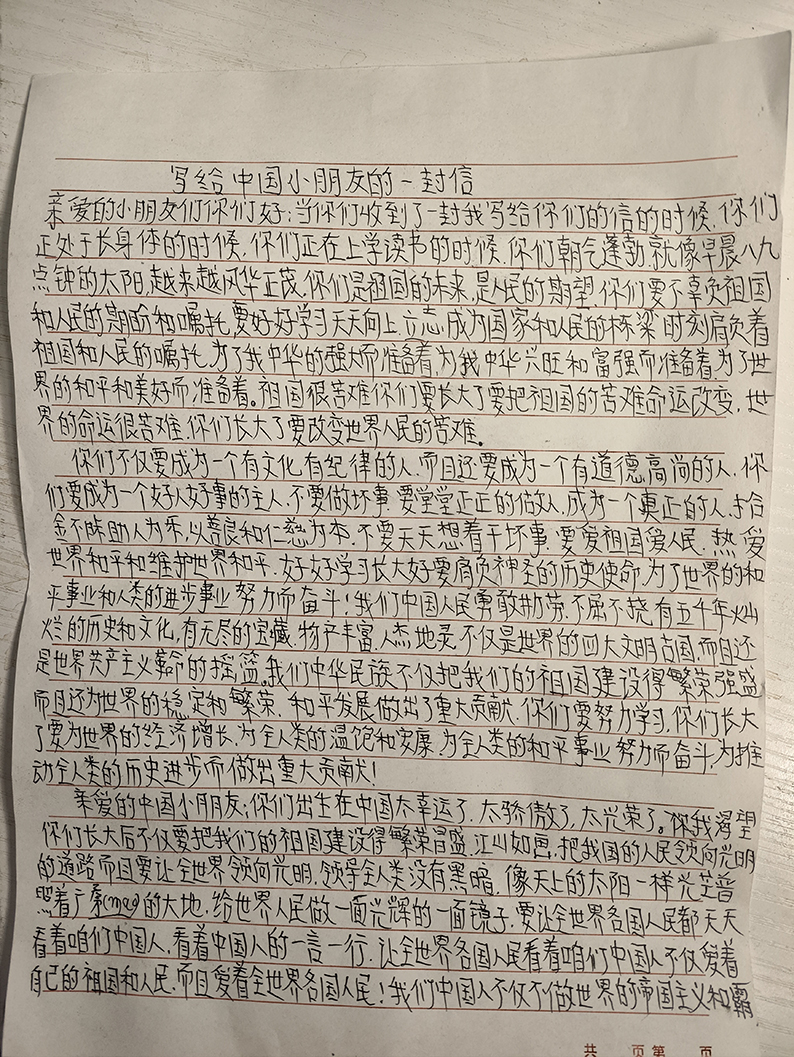 写给中国小朋友的一封信
亲爱的小朋友们你们好;当你们收到了一封我写给你们的信的时候,你们
正处于长身体的时候,你们正在上学读书的时候,你们朝气蓬勃就像早晨八九
点钟的太阳,越来越风华正茂,你们是祖国的未来,是人民的期望,你们要不辜负祖国
和人民的期盼和嘱托,要好好学习天天向上,立志成为国家和人民的栋梁,时刻肩负着
祖国和人民的嘱托,为了我中华的强大而准备着,为我中华兴旺和富强而准备着,为了世
界的和平和美好而准备着。祖国很苦难你们要长大了要把祖国的苦难命运改变,世
界的命运很苦难,你们长大了要改变世界人民的苦难。
你们不仅要成为一个有文化,有纪律的人,而且还要成为一个有道德,高尚的人,你
们要成为一个好人好事的主人,不要做坏事,要堂堂正正的做人,成为一个真正的人,拾
金不昧助人为乐,以善良和仁慈为本,不要天天想着干坏事,要爱祖国爱人民,热爱
世界和平和维护世界和平,好好学习长大好要肩负神圣的历史使命,为了世界的和
平事业和人类的进步事业,努力而奋斗!我们中国人民勇敢勤劳,不屈不挠,有五千年灿
烂的历史和文化,有无尽的宝藏,物产丰富,人杰地灵,不仅是世界的四大文明古国,而且还
是世界共产主义革命的摇篮。我们中华民族不仅把我们的祖国建设得繁荣强盛
而且还为世界的稳定和繁荣,和平发展做出了重大贡献,你们要努力学习,你们长大
了要为世界的经济增长,为全人类的温饱和安康,为全人类的和平事业努力而奋斗,为推
动全人类的历史进步而做出重大贡献!
亲爱的中国小朋友;你们出生在中国太幸运了,太骄傲了,太光荣了。你我渴望
你们长大后不仅要把我们的祖国建设得繁荣昌盛,江山如画,把我国的人民领向光明
的道路而且要让全世界领向光明,领导全人类没有黑暗,像天上的太阳一样光芒普
照着广袤(mao)的大地,给世界人民做一面光辉的一面镜子,要让全世界各国人民都天天
看着咱们中国人,看着中国人的一言一行,让全世界各国人民看着咱们中国人不仅爱着
自己的祖国和人民,而且爱着全世界各国人民!我们中国人不仅不做世界的帝国主义和霸
共 页第 页